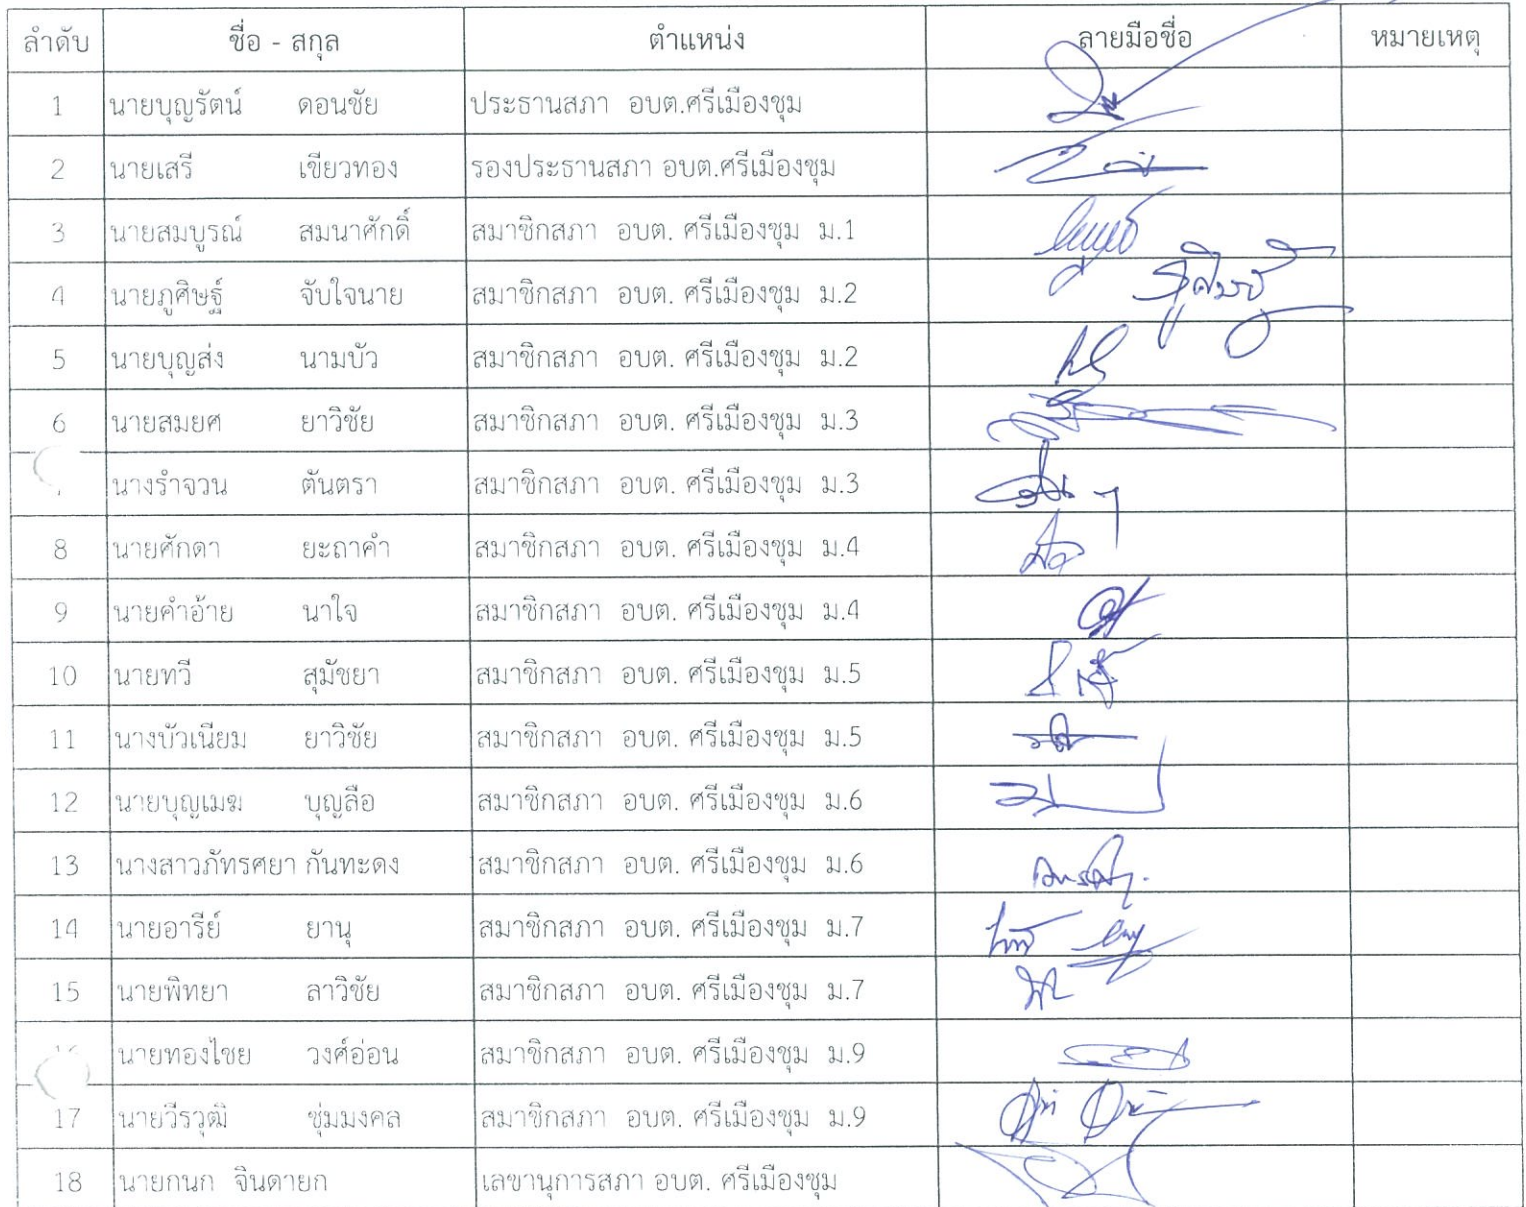 ลำดับ ชื่อ - สกุล ตำแหน่ง ลายมือชื่อ หมายเหตุ
1 นายบุญรัตน์ ดอนชัย ประธานสภา อบต.ศรีเมืองชุม
2 นายเสรี เขียวทอง รองประธานสภา อบต.ศรีเมืองชุม
3 นายสมบูรณ์ สมนาศักดิ์ สมาชิกสภา อบต. ศรีเมืองชุม ม.1
4 นายภูศิษฐ์ จับใจนาย สมาชิกสภา อบต. ศรีเมืองชุม ม.2
5 นายบุญส่ง นามบัว สมาชิกสภา อบต. ศรีเมืองชุม ม.2
6 นายสมยศ ยาวิชัย สมาชิกสภา อบต. ศรีเมืองชุม ม.3
นางรำจวน ตันตรา สมาชิกสภา อบต. ศรีเมืองชุม ม.3
8 นายศักดา ยะถาคำ สมาชิกสภา อบต. ศรีเมืองชุม ม.4
9 นายคำอ้าย นาใจ สมาชิกสภา อบต. ศรีเมืองชุม ม.4
10 นายทวี สุมัชยา สมาชิกสภา อบต. ศรีเมืองชุม ม.5
11 นางบัวเนียม ยาวิชัย สมาชิกสภา อบต. ศรีเมืองชุม ม.5
12 นายบุญเมฆ บุญลือ สมาชิกสภา อบต. ศรีเมืองชุม ม.6
13 นางสาวภัทรศยา กันทะดง สมาชิกสภา อบต. ศรีเมืองชุม ม.6
14 นายอารีย์ ยานุ สมาชิกสภา อบต. ศรีเมืองชุม ม.7
15 นายพิทยา ลาวิชัย สมาชิกสภา อบต. ศรีเมืองชุม ม.7
นายทองไชย วงศ์อ่อน สมาชิกสภา อบต. ศรีเมืองชุม ม.9
17 นายวีรวุฒิ ชุ่มมงคล สมาชิกสภา อบต. ศรีเมืองชุม ม.9
18 นายกนก จินดายก เลขานุการสภา อบต. ศรีเมืองชุม